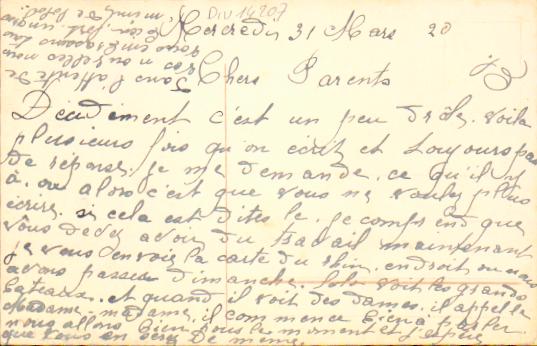 Div 14207
Mercredi 31 Mars 20
Chers Parents
Décidément c'est un peu drôle. voila
plusieurs fois qu'on écrit et toujours pas
de réponse. je me demande. ce qu'il y
à. ou alors c'est que vous ne voulez plus
écrire. si cela est dites le. je comprend que
vous devez avoir du travail maintenant
je vous envoie la carte du Rhin. endroit ou nous
avons passer dimanche. Lolo voit les grands
bateaux. et quand il voit des dames. il appelle
Madame. madame. il commence bien a parler.
nous allons bien pour le moment et j'espère
que vous en serez de meme.
Dans l'attente de
vos nouvelles nous
vous embrassons tous